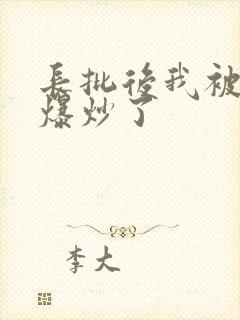 長批後我被
爆炒了
李大